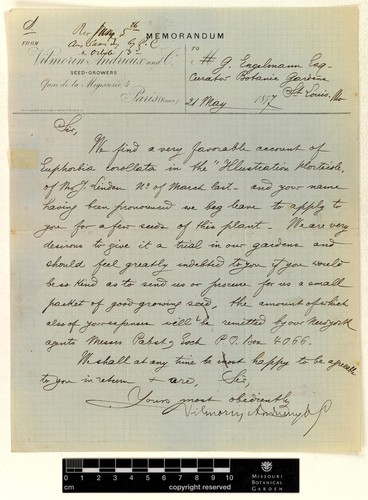 MEMORANDUM
FROM
Vilmorin Andrieux and Co
SEED-GROWERS
Quai de la Megisserie, 4
Paris (France)
TO
H. G. Engelmann Esq.
Curator Botanic Gardens
St. Louis, Mo
21 May 1877
Sir,
We find a very favorable account of
Euphorbia corollata in the "Illustration Horticole,
of Mr J. Linden No of March last - and your name
having been pronounced we beg leave to apply to
you for a few seeds of this plant. We are very
desirous to give it a trial in our gardens and
should feel greatly indebted to you if you would
be so kind as to send us or procure for us a small
packet of good growing seed, the amount of which
also of your expenses will be remitted by our New York
agents Messrs Pabst & Esch P.O. Box 4066.
We shall at any time be most happy to be agreeable
to you in return & are, Sir,
Yours most obediently
Vilmorin Andrieux & Co
0 1 2 3 4 5 6 7 8 9 10
cm
copyright reserved
MISSOURI
BOTANICAL
GARDEN